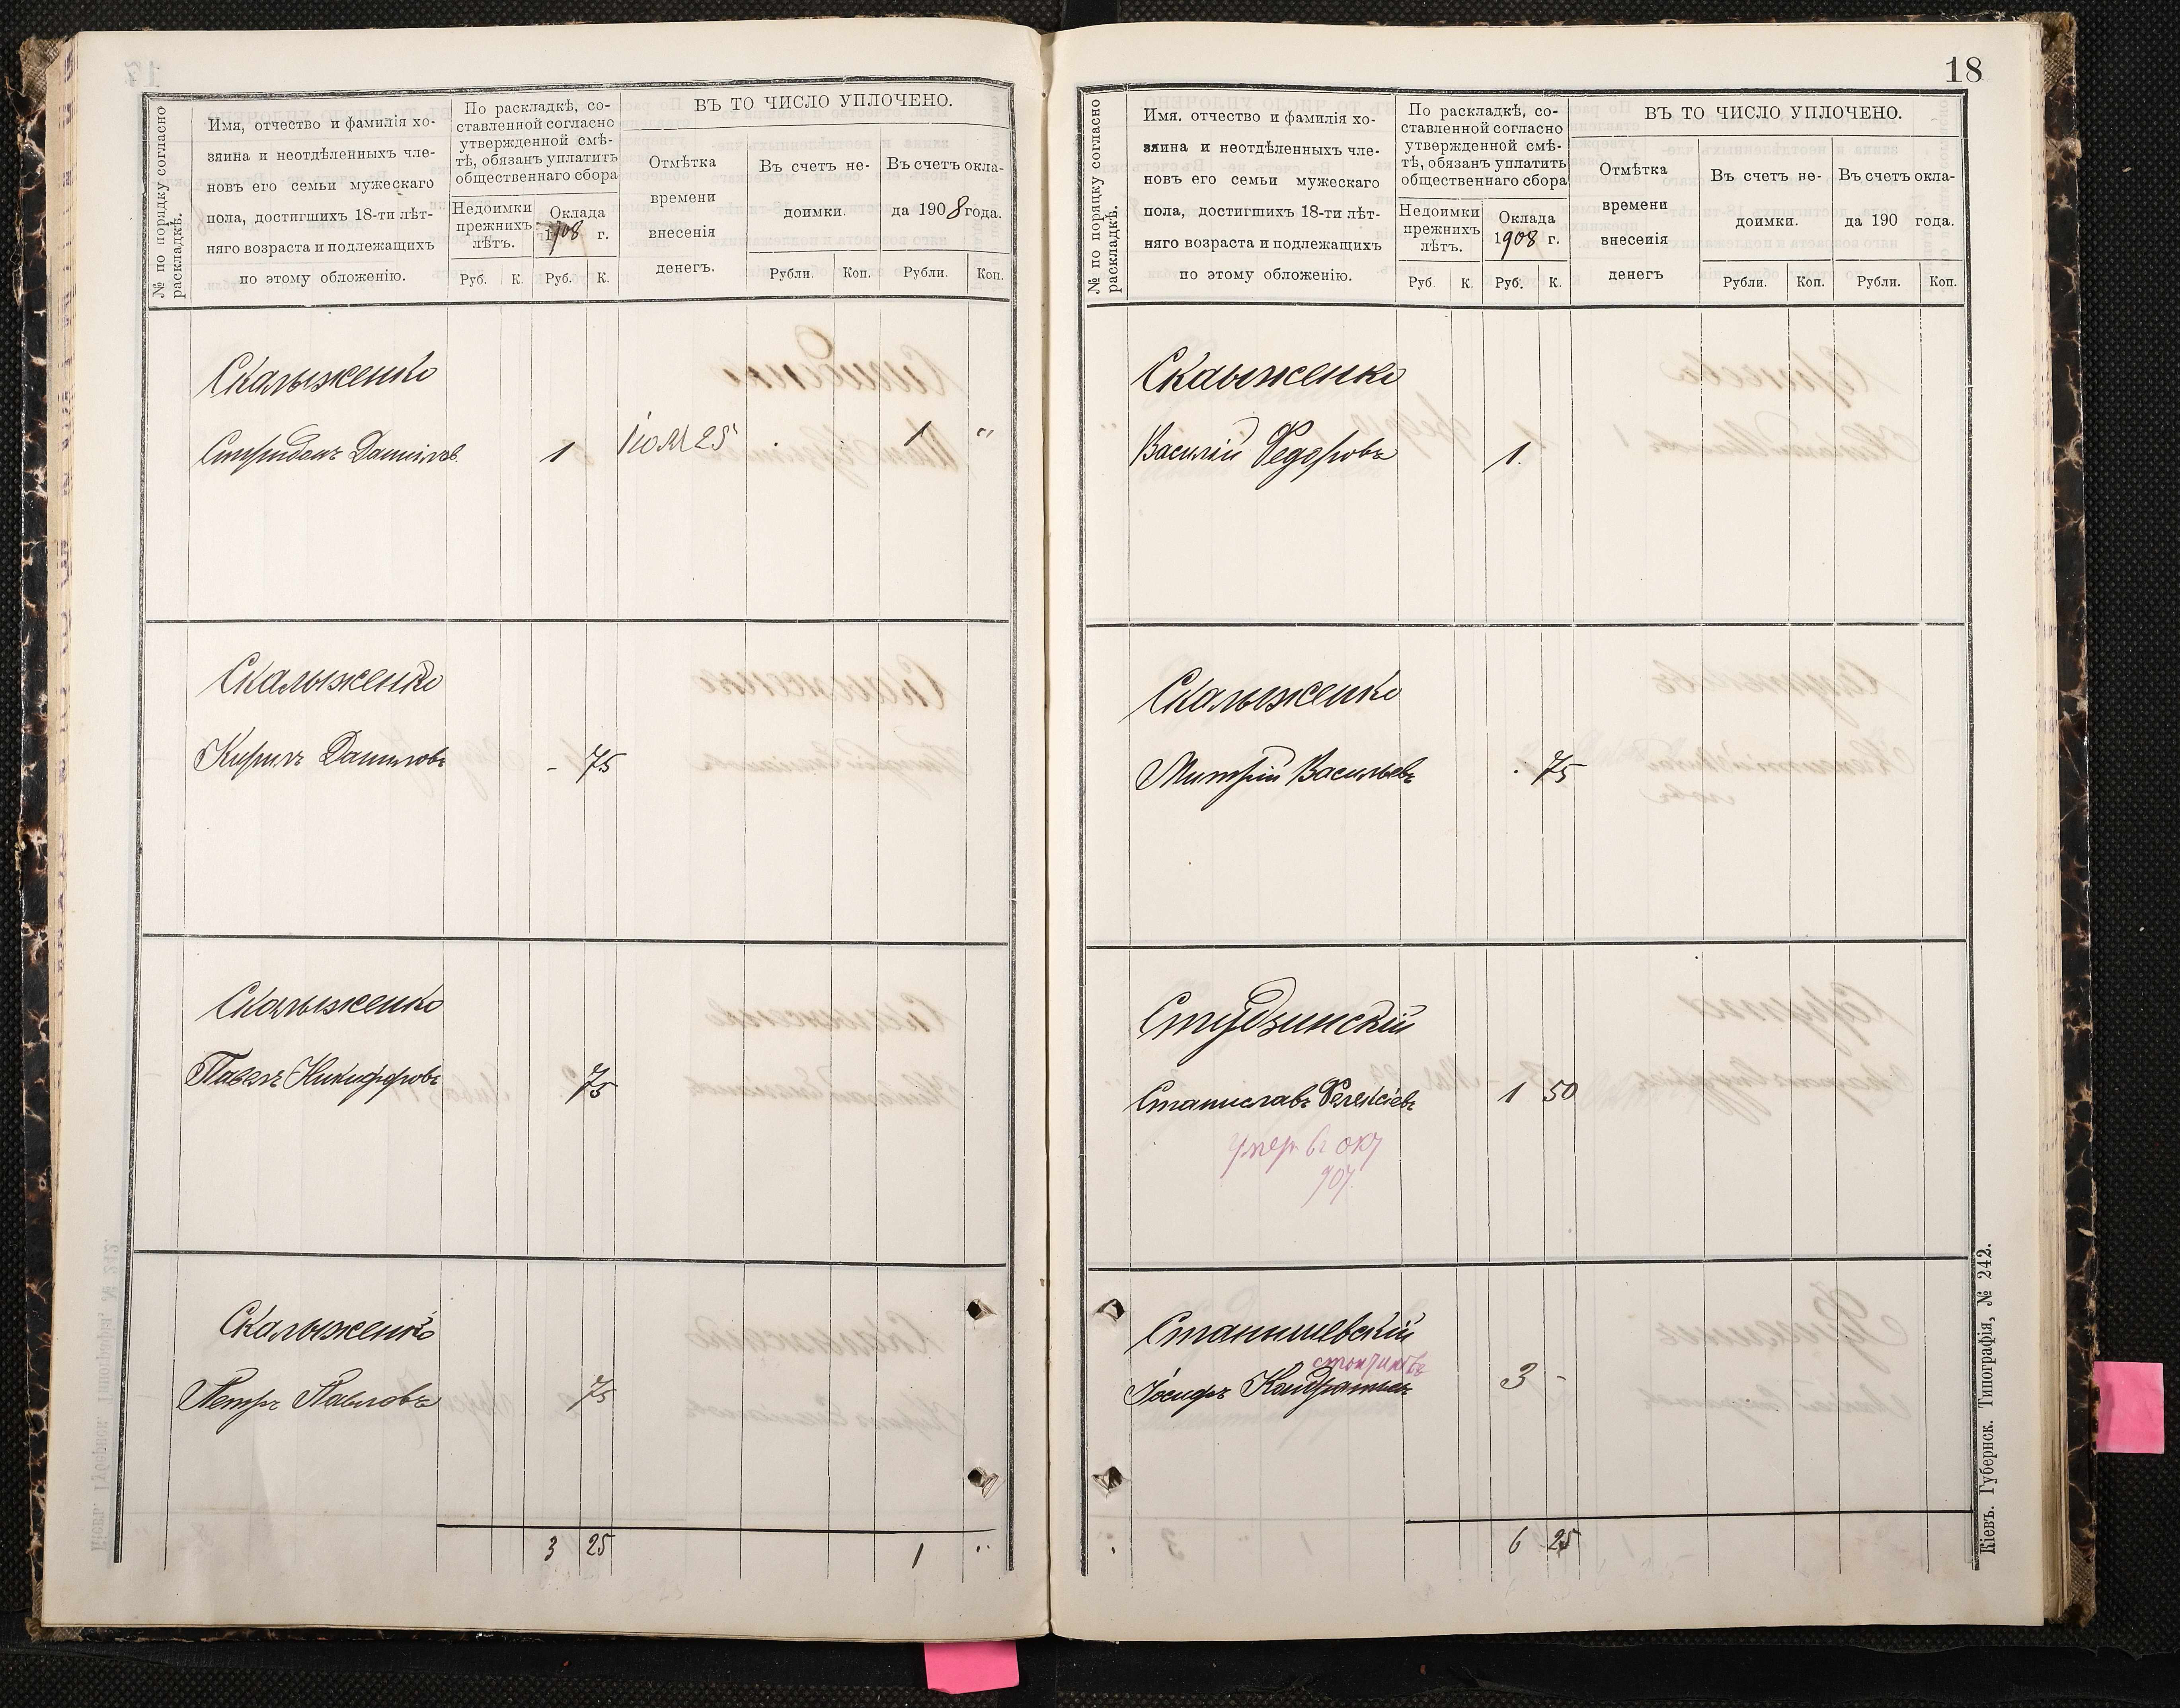 № по порядку согласно
раскладкѣ.
Имя, отчество и фамилія хо-
зяина и неотдѣленныхъ чле-
новъ его семьи мужескаго
пола, достигшихъ 18-ти лѣт-
няго возраста и подлежащихъ
по этому обложенію.
По раскладкѣ, со-
ставленной согласно
утвержденной смѣ-
тѣ, обязанъ уплатить
общественнаго сбора
Недоимки
прежнихъ
лѣтъ.
Оклада
1908 г.
Руб. К. Руб. К.
ВЪ ТО ЧИСЛО УПЛОЧЕНО.
Отмѣтка
времени
внесенія
денегъ.
Въ счетъ не-
доимки.
Въ счетъ окла-
да 1908 года.
Рубли. Коп. Рубли. Коп.
Скалыженко
Спиридонъ Данилов. 1 25 1 "
Скалыженко
Кирилъ Даниловъ - 75
Скалыженко
Павелъ Никифоровъ 75
Скалыженко
Петръ Павловъ 75
3 25 1 "
18
№ по порядку согласно
раскладкѣ.
Имя. отчество и фамилія хо-
зяина и неотдѣленныхъ чле-
новъ его семьи мужескаго
пола, достигшихъ 18-ти лѣт-
няго возраста и подлежащихъ
по этому обложенію.
По раскладкѣ, со-
ставленной согласно
утвержденной смѣ-
тѣ, обязанъ уплатить
общественнаго сбора
Недоимки
прежнихъ
лѣтъ.
Оклада
1908 г.
Руб К. Руб. К.
ВЪ ТО ЧИСЛО УПЛОЧЕНО.
Отмѣтка
времени
внесенія
денегъ
Въ счетъ не-
доимки.
Въ счетъ окла-
да 190 года.
Рубли. Коп. Рубли. Коп.
Скалыженко
Василій Федоровъ 1.
Скалыженко
Митрій Васильевъ . 75
Студзинскій
Станиславъ 1 50
907.
Станишевскій
Іосифъ 3 -
6 25
Кіевъ. Губернск. Типографія, № 242.